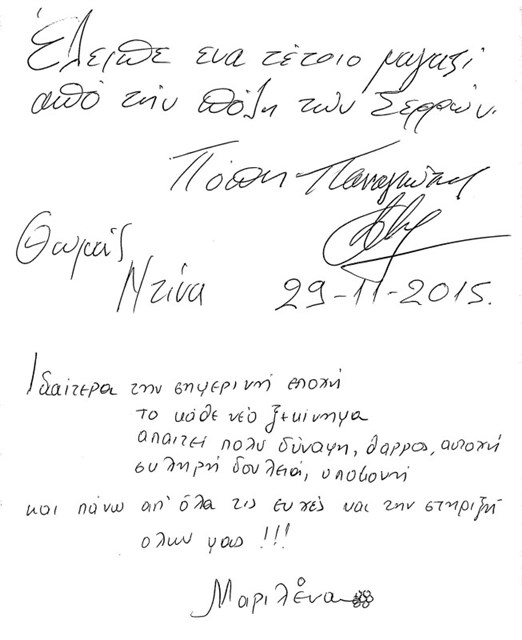 Έλειπε ενα τέτοιο μαγαζί
από την πόλη των Σερρών.
Πόπη - Παναγιώτης
Θωμάς
Ντίνα
29-11-2015.
Ιδαίτερα την σημερινή εποχή
το κάθε νέο ξεκίνημα
απαιτεί πολυ δύναμη, θαρρος, αντοχή
σκληρή δουλειά, υπομονή
και πάνω απ' όλα τις ευχές και την στηριξή
ολων μας !!!
Μαριλένα